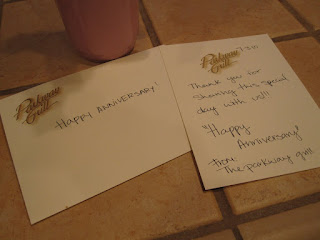 Parkway
Grill
HAPPY ANNIVERSARY!
Parkway
Grill
Thank you for
Sharing this special
day with us!!!
"Happy
Anniversary!"
from:
The parkway grill